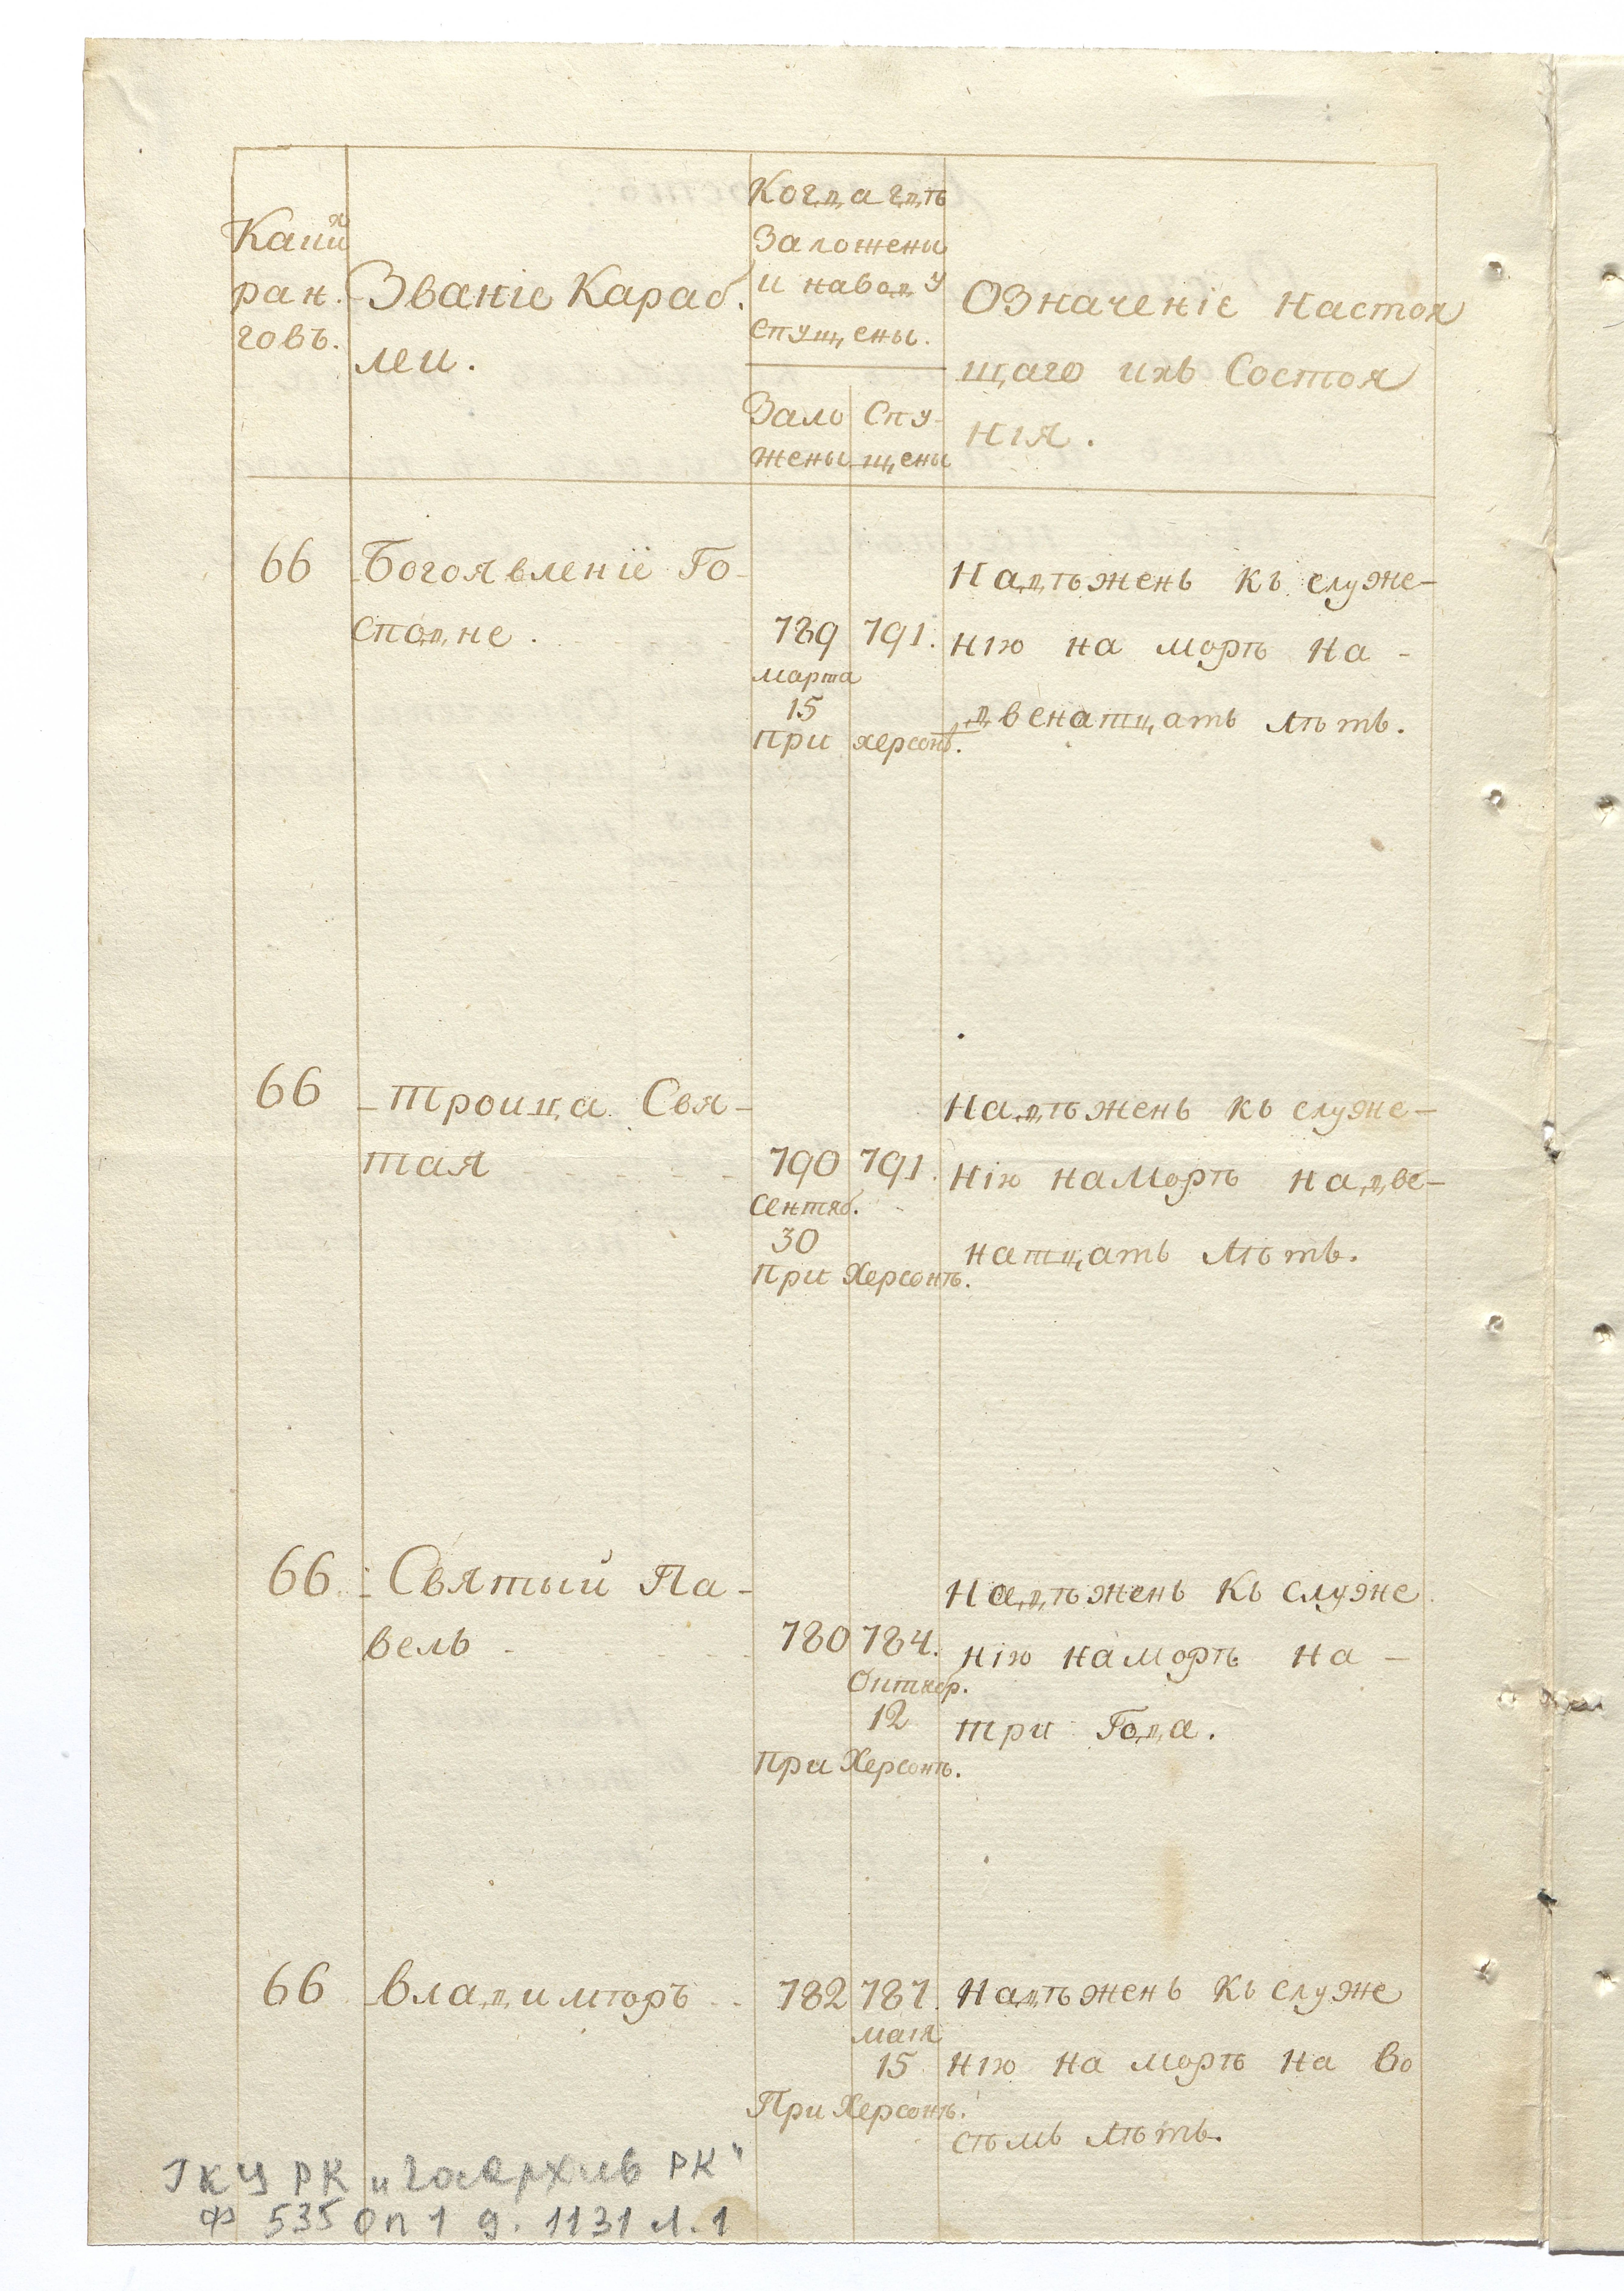 Каии̃
ран.
говъ.
Званіе Караб.
леи.
Когда гдѣ
Заложены
и наводу
спущены.
Зало
жены
Спу-
щены
Означеніе настоя
щаго ихъ Состоя
нія.
66
Богоявленіе Го-
сподне.
789
марта
15
791.
При херсонѣ.
Надѣженъ къ служе-
нію на морѣ на-
двенатцать лѣтъ.
66
Троица Свя-
тая
790
Сентяб.
30
791.
При Херсонѣ.
Надѣженъ къ служе-
нію наморѣ надве-
натцать лѣтъ.
66
Святый Па-
велъ
780
784.
Октяб.
12
При Херсонѣ.
Надѣженъ къ служе
нію наморѣ на-
три Года.
66
владимѣръ
782
787.
маія
15
При Херсонѣ.
Надѣженъ къ служе
нію на морѣ на во
сѣмь лѣтъ.
ГКУ РК "Госархив РК"
Ф 535 Оп 1 д. 1131 л. 1